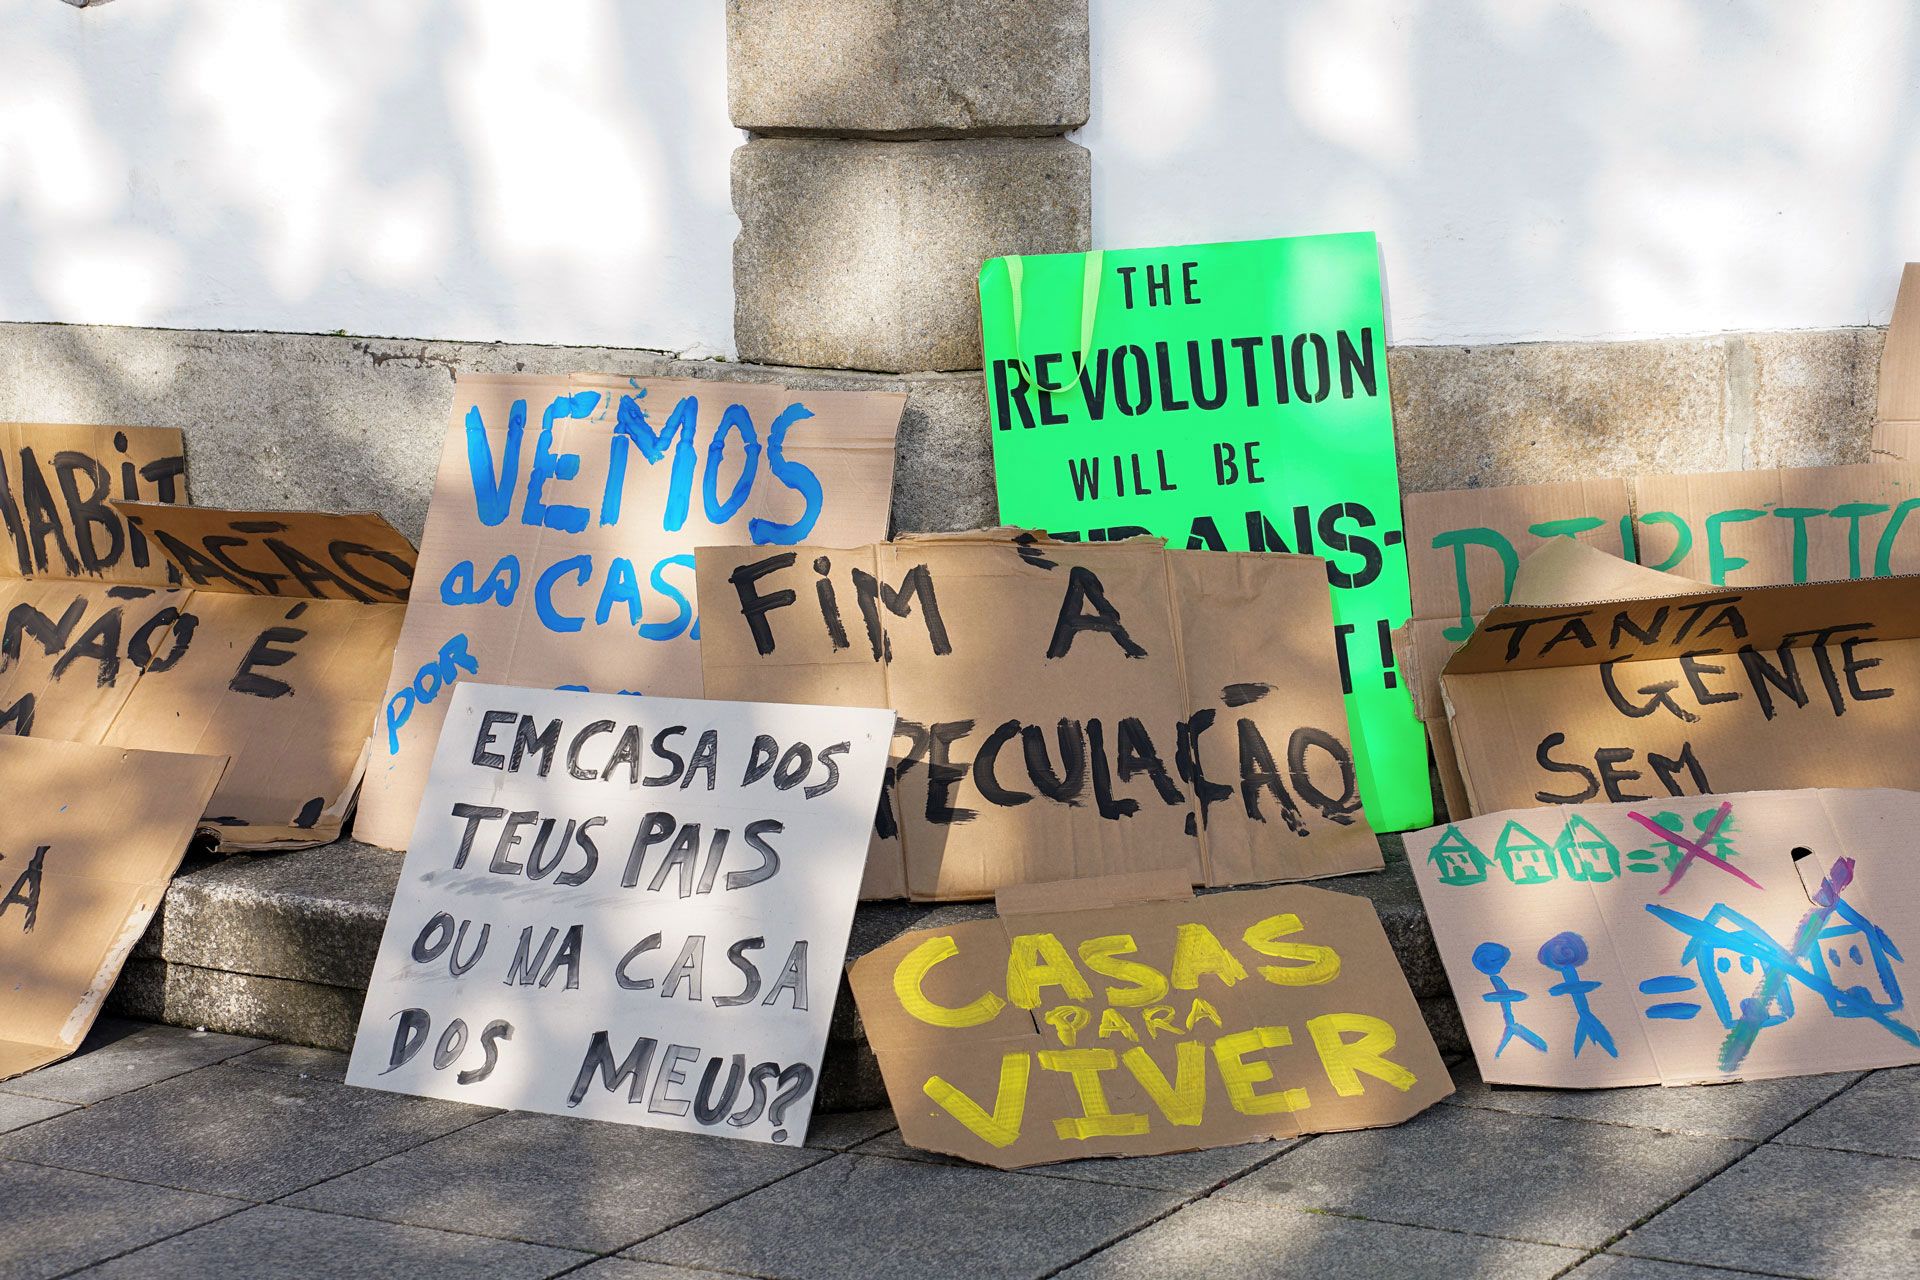 HABITAÇÃO
NÃO É
VEMOS
as CASA
POR
THE
REVOLUTION
WILL BE
TRANS-
T!
FIM À
ESPECULAÇÃO
DIREITO
TANTA
GENTE
SEM
EM CASA DOS
TEUS PAIS
OU NA CASA
DOS MEUS?
CASAS
PARA
VIVER